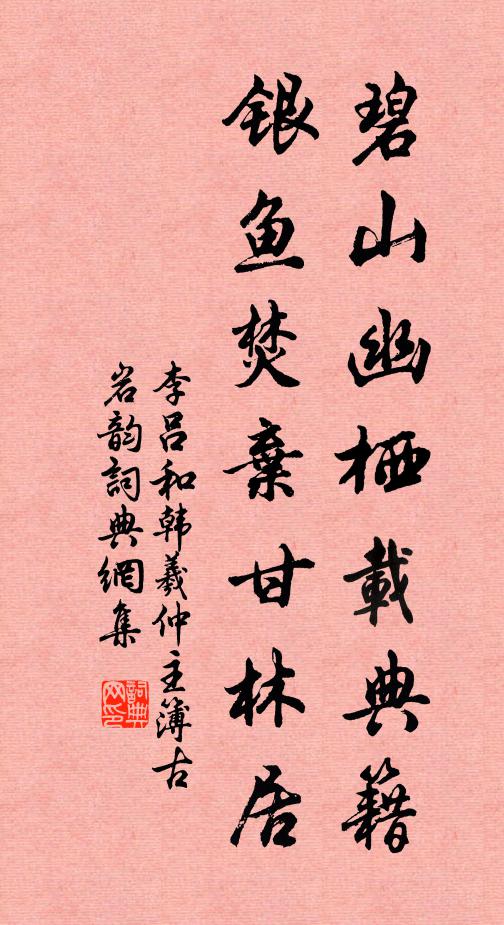 碧山幽栖載典籍
银鱼焚棄甘林居
李吕和韩羲仲主簿古
岩韵詞典網集
詞典
网印